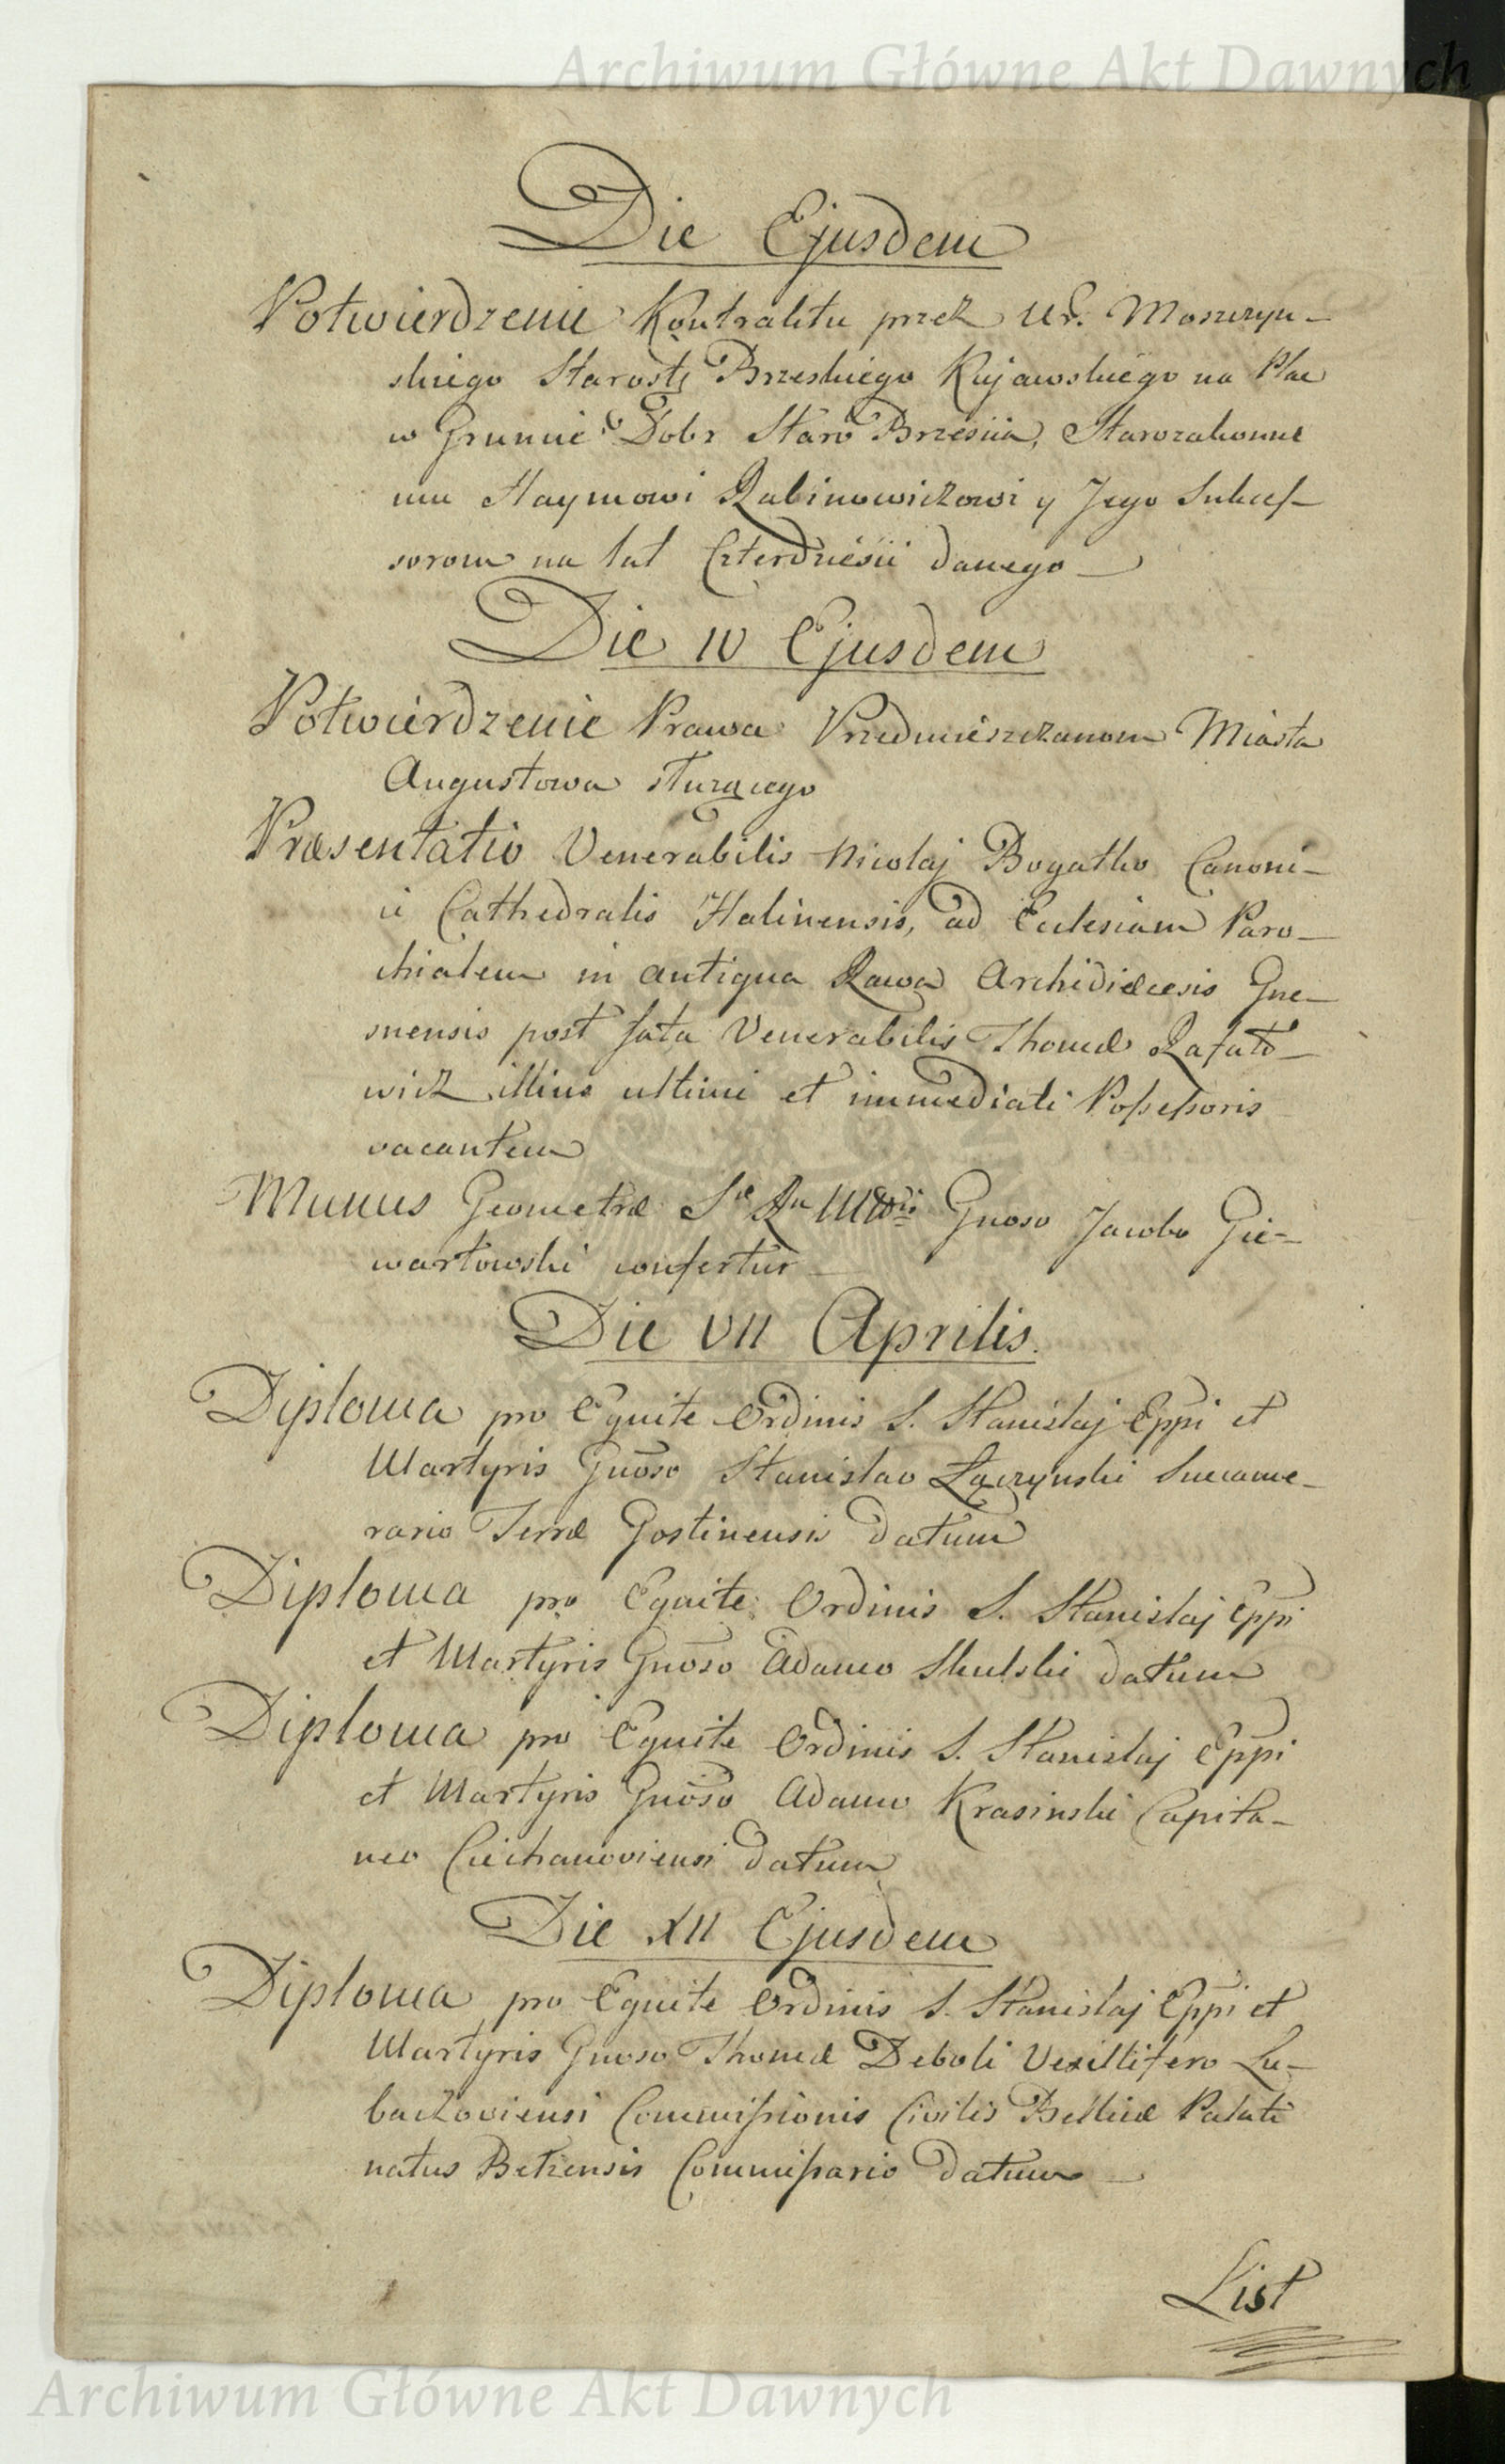 Archiwum Główne Akt Dawnych
Die Ejusdem
Potwierdzenie Kontraktu przez Ur. Moszczyn-
skiego Starostę Brzeskiego Kujawskiego na Plac
w Gruncie Dobr Staro Brzescia, Starozakonne
mu Haymowi Rabinowiczowi y Jego Sukces-
sorom na lat Czterdzieści danego
Die IV Ejusdem
Potwierdzenie Prawa Przedmieszczanom Miasta
Augustowa służącego
Præsentatio Venerabilis Nicolaj Bogatko Canoni-
ci Cathedralis Halinensis, ad Ecclesiam Paro-
chialem in antiqua Rawa Archidiæcesis Gne-
snensis post fata Venerabilis Thomæ Rafało-
wicz illius ultimi et immediati Possessoris
vacantem
Munus Geometræ Sæ Ræ Mttis Gnoso Jacobo Gie-
wartowski confertur
Die VII Aprilis.
Diploma pro Equite Ordinis S. Stanislaj Eppi et
Martyris Gnoso Stanislao Łączynski Succame-
rario Terræ Gostinensis datum
Diploma pro Equite Ordinis S. Stanislaj Eppi
et Martyris Gnoso Adamo Skulski datum
Diploma pro Equite Ordinis S. Stanislaj Eppi
et Martyris Gnoso Adamo Krasinski Capita-
neo Ciechanoviensi datum
Die XII Ejusdem
Diploma pro Equite Ordinis S. Stanislaj Eppi et
Martyris Gnoso Thomæ Deboli Vexillifero Lu-
baczoviensi Commissionis Civilis Bellicæ Palati
natus Belzensis Commissario datum
List
Archiwum Główne Akt Dawnych